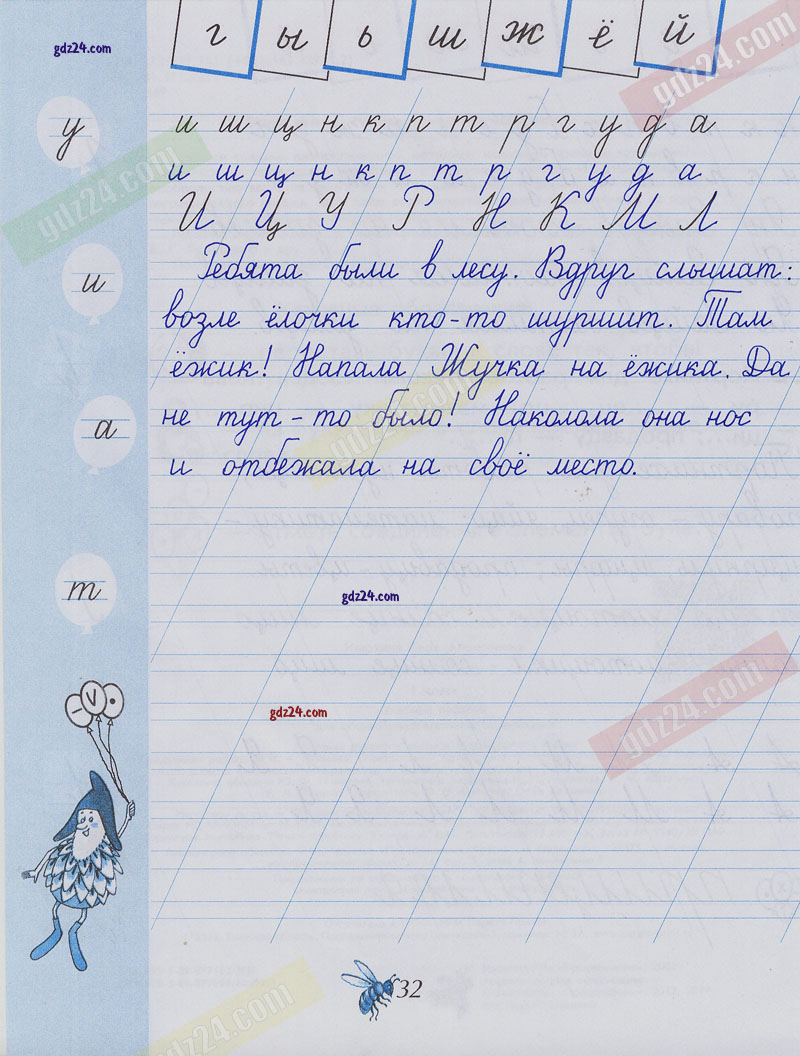 г ы ь ш ж ё й
gdz24.com
gdz24.com
у
и ш щ н к п т р г у д а
gdz24.com
и ш щ н к п т р г у д а
И Ц У Р Н К М Л
Ребята были в лесу. Вдруг слышат:
и
возле ёлочки кто-то шуршит. Там
ёжик! Напала Жучка на ёжика. Да
gdz24.com
а
не тут-то было! Наколола она нос
и отбежала на своё место.
т
gdz24.com
gdz24.com
gdz24.com
32
gdz24.com